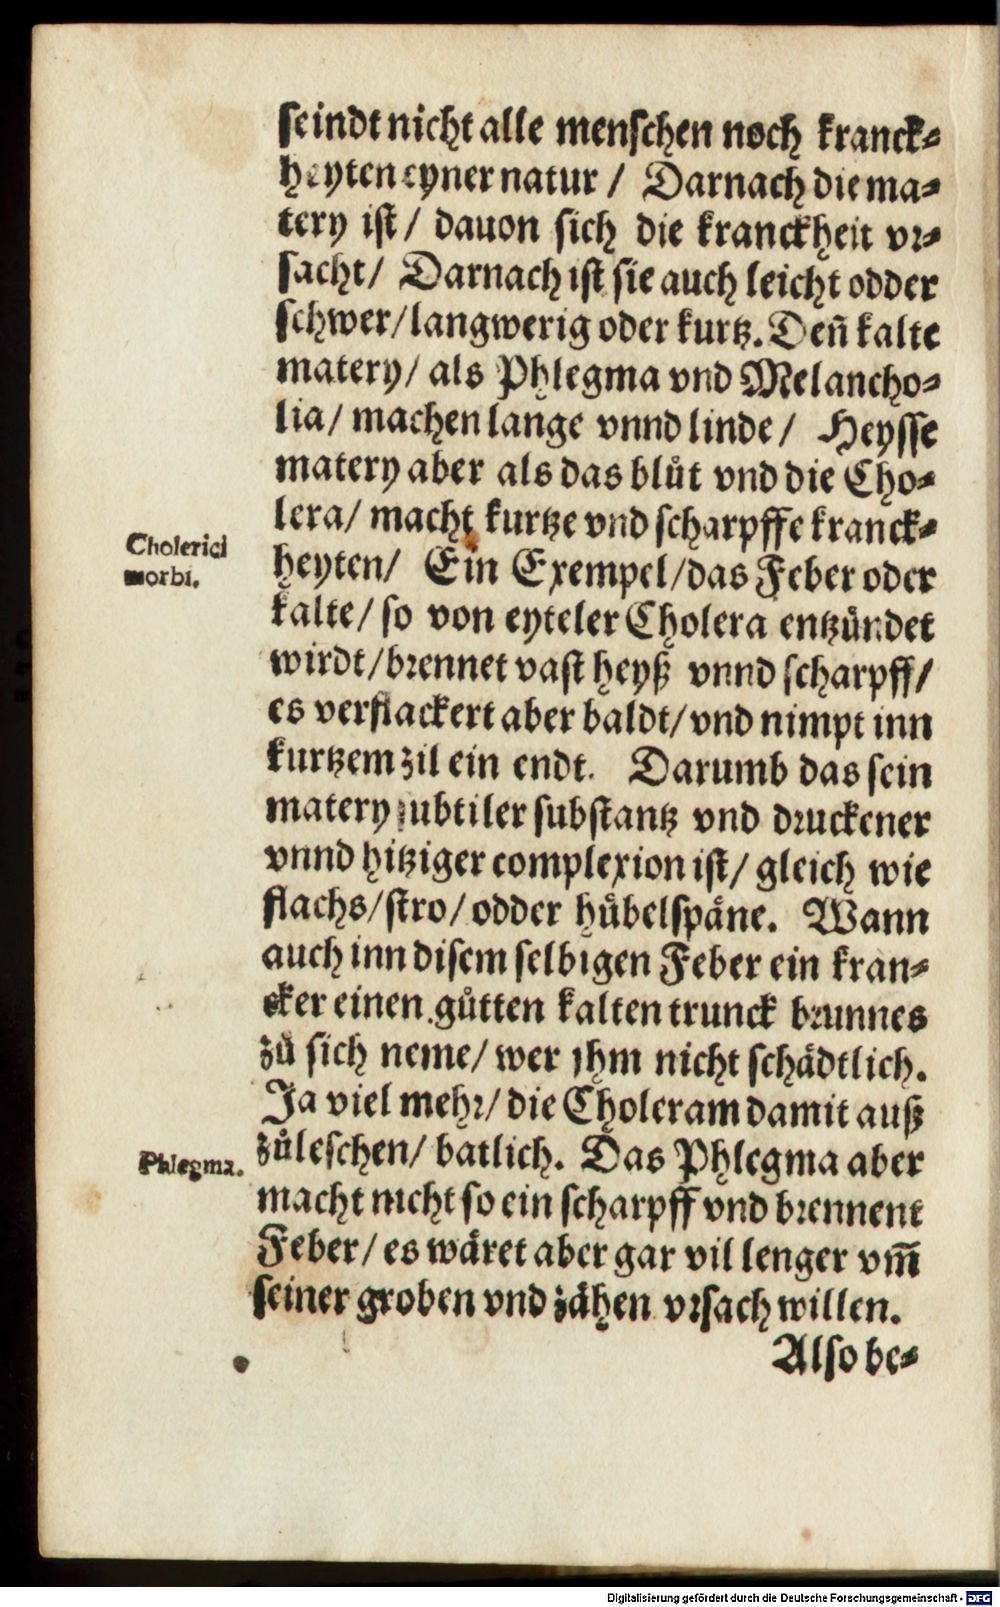 seindt nicht alle menschen noch kranck⸗
heyten eyner natur / Darnach die ma⸗
tery ist / dauon sich die kranckheit vr⸗
sacht / Darnach ist sie auch leicht odder
schwer / langwerig oder kurtz. Deñ kalte
matery / als Phlegma vnd Melancho⸗
lia / machen lange vnnd linde / Heysse
matery aber als das blůt vnd die Cho⸗
lera / macht kurtze vnd scharpffe kranck⸗
Cholerici
morbi.
heyten / Ein Exempel / das Feber oder
kalte / so von eyteler Cholera entzündet
wirdt / brennet vast heyß vnnd scharpff /
es verflackert aber baldt / vnd nimpt inn
kurtzem zil ein endt. Darumb das sein
matery subtiler substantz vnd druckener
vnnd hitziger complexion ist / gleich wie
flachs / stro / odder hübelspäne. Wann
auch inn disem selbigen Feber ein kran⸗
cker einen gůtten kalten trunck brunnes
zů sich neme / wer jhm nicht schädtlich.
Ja viel mehr / die Choleram damit auß
zůleschen / batlich. Das Phlegma aber
Phlegma.
macht nicht so ein scharpff vnd brennent
Feber / es wäret aber gar vil lenger vm̃
seiner groben vnd zähen vrsach willen.
Also be⸗
Digitalisierung gefördert durch die Deutsche Forschungsgemeinschaft - DFG